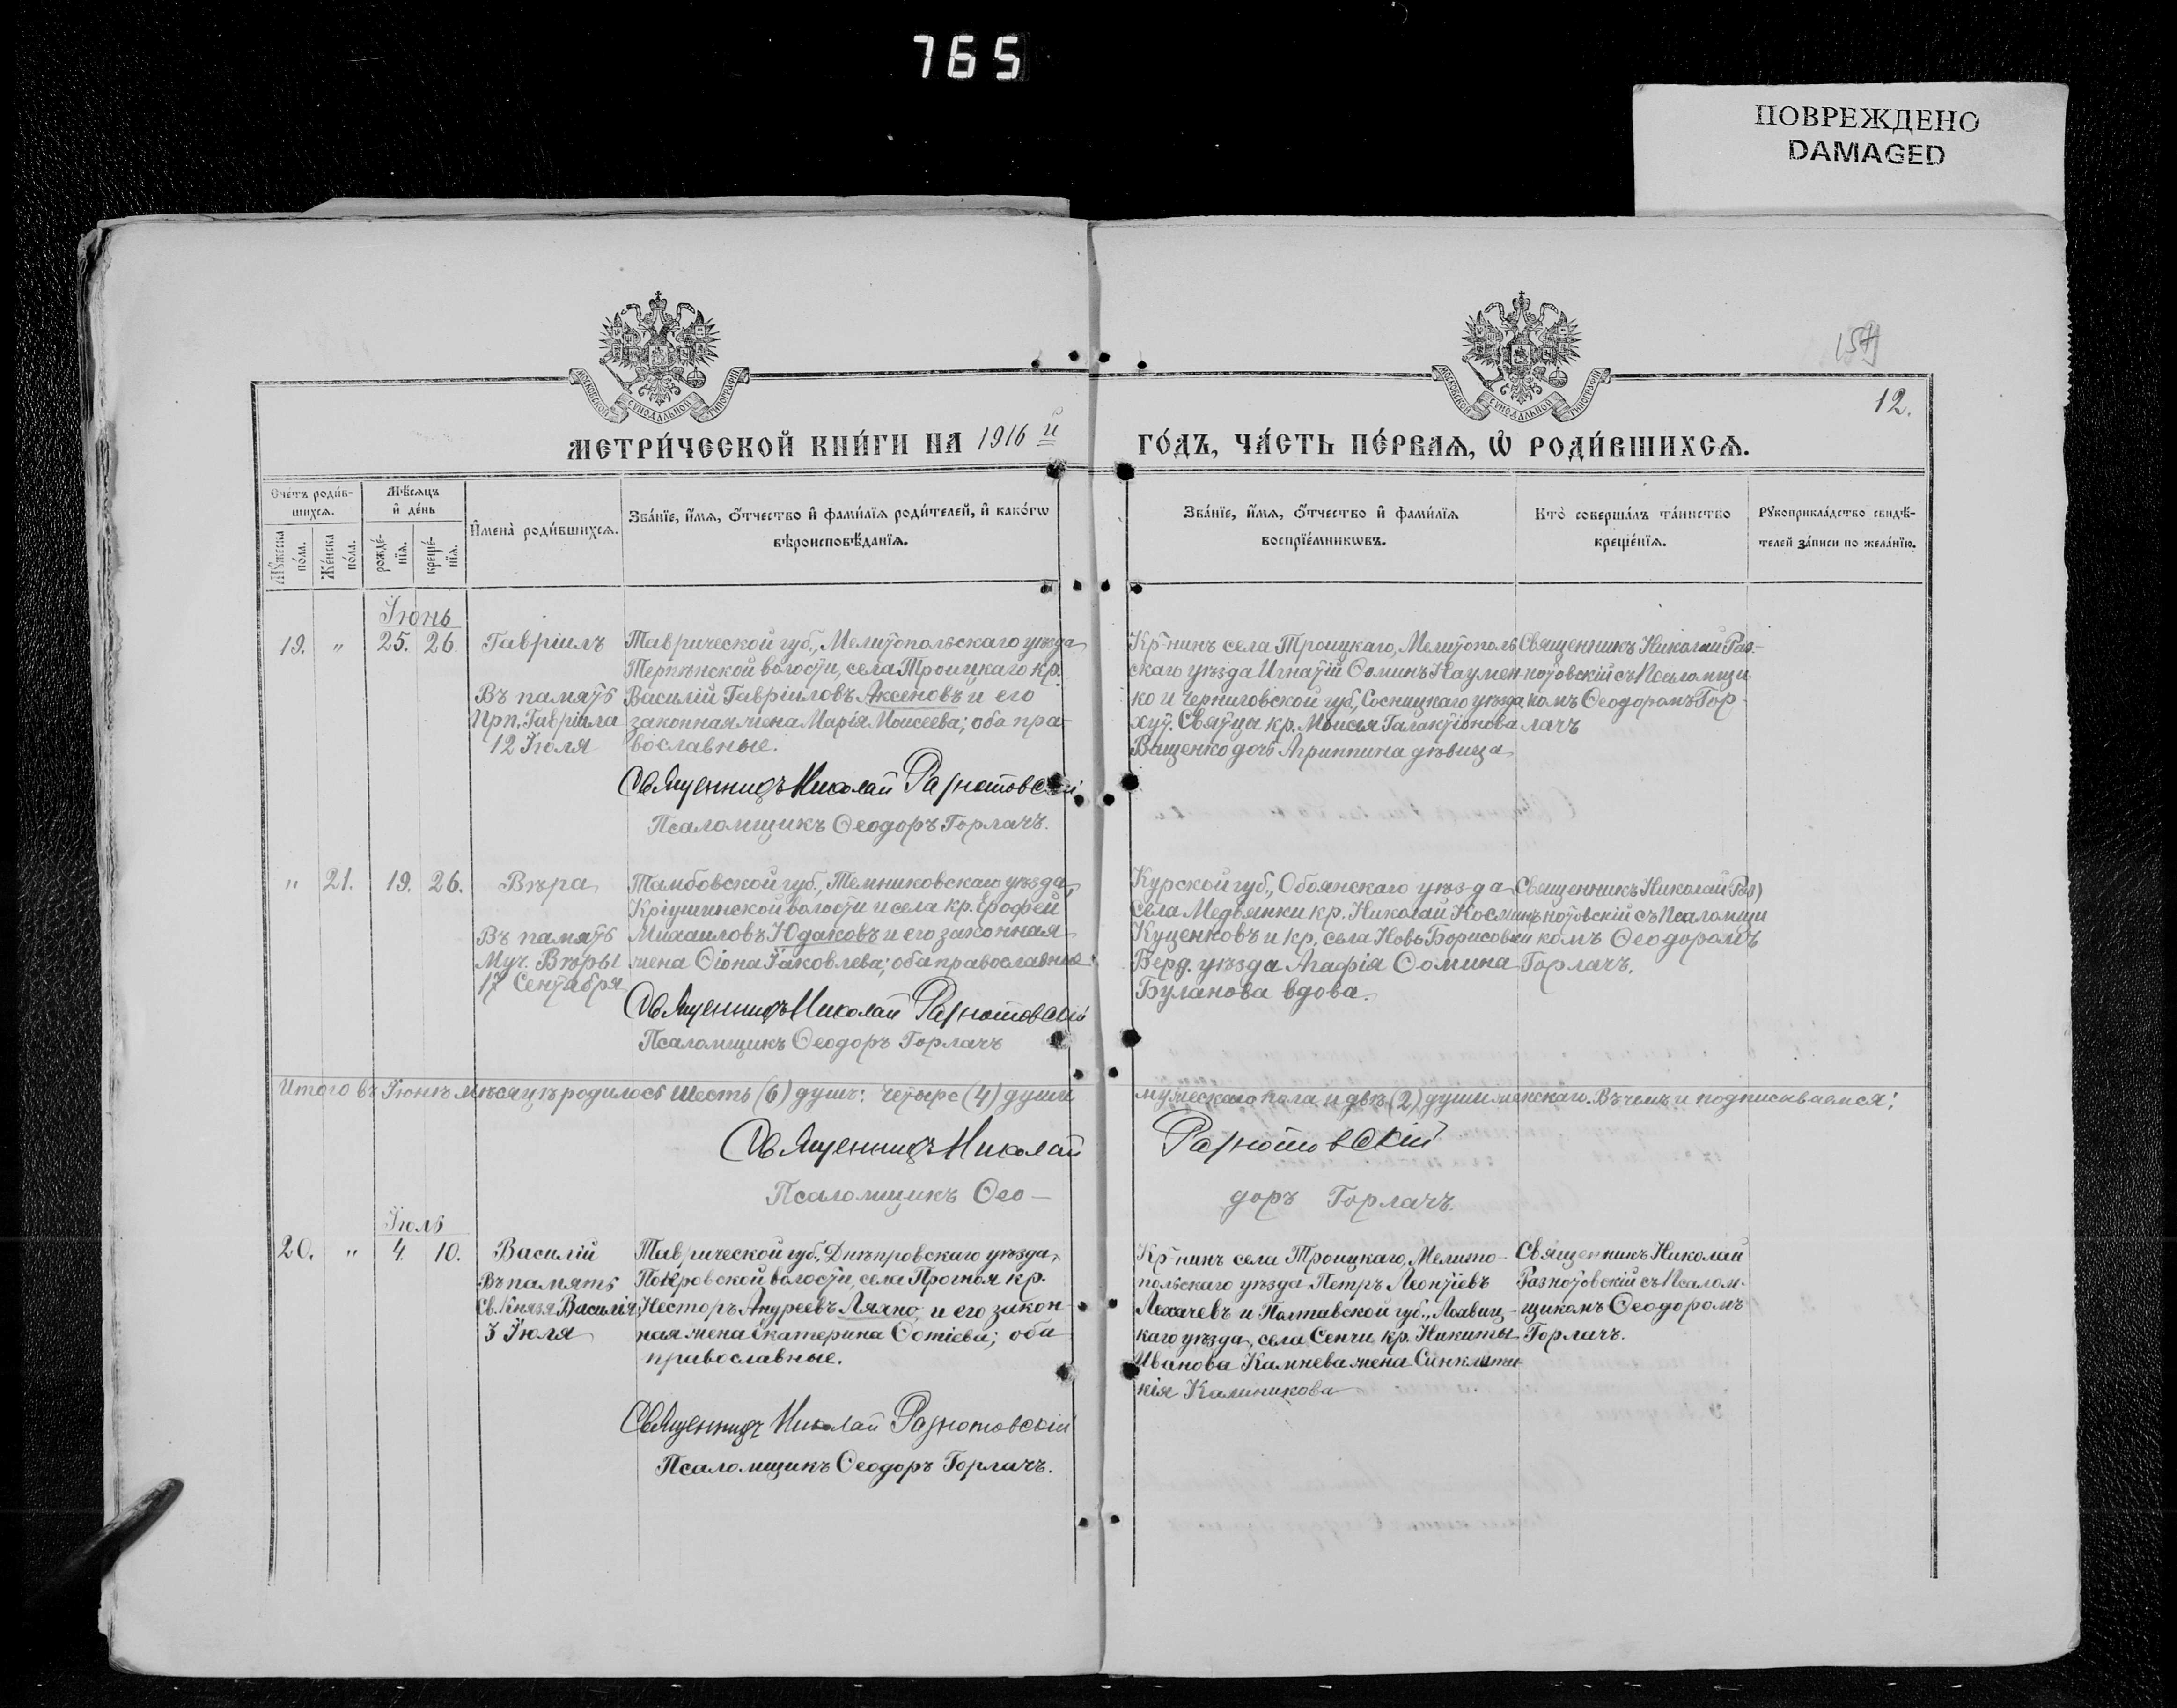 765
ПОВРЕЖДЕНО
DAMAGED
154
12.
МОСКОВСКОЙ СѴНОДАЛЬНОЙ ТИПОГРАФІИ
МОСКОВСКОЙ СѴНОДАЛЬНОЙ ТИПОГРАФІИ
МЕТРИ́ЧЕСКОЙ КНИ́ГИ НА 1916 й
ГО́ДЪ, ЧА́СТЬ ПЕ́РВАѦ, Ѡ҆ РОДИ́ВШИХСѦ.
Сче́тъ роди́в-
шихсѧ.
Мꙋ́жеска
по́ла.
Же́нска
по́ла.
Мѣ́сѧцъ
и҆ де́нь
рожде́-
нїѧ.
креще́-
нїѧ.
И҆мена̀ роди́вшихсѧ.
Зва́нїе, и҆́мѧ, ѻ҆́тчество и҆ фами́лїѧ роди́телей, и҆ како́гѡ
вѣроисповѣ́данїѧ.
Зва́нїе, и҆́мѧ, ѻ҆́тчество и҆ фами́лїѧ
воспрїе́мникѡвъ.
Кто̀ соверша́лъ та́инство
креще́нїѧ.
Рꙋкоприкла́дство свидѣ́-
телей за́писи по жела́нїю.
Іюнь
19. " 25. 26. Гавріилъ
Въ память
Прп. Гавріила
12 Іюля
Таврической губ., Мелитопольскаго уѣзда
Терпѣнской волости, села Троицкаго кр.
Василій Гавріиловъ Аксеновъ и его
законная жена Марія Моисеева; оба пра-
вославные.
Священникъ Николай Разнотовскій
Псаломщикъ Ѳеодоръ Горлачъ.
Кр-нинъ села Троицкаго, Мелитополь
скаго уѣзда Игнатій Ѳоминъ Наумен-
ко и Черниговской губ., Сосницкаго уѣзда
хут. Святца кр. Моисея Галактіонова
Ващенко дочь Агриппина дѣвица
Священникъ Николай Раз-
нотовскій съ Псаломщи
комъ Ѳеодоромъ Гор-
лачъ
" 21. 19. 26. Вѣра
Въ память
Муч. Вѣры
17 Сентября
Тамбовской губ., Темниковскаго уѣзда,
Кріушинской волости и села кр. Ерофей
Михаиловъ Юдаковъ и его законная
жена Ѳіона Іаковлева; оба православные
Священникъ Николай Разнотовскій
Псаломщикъ Ѳеодоръ Горлачъ
Курской губ., Обоянскаго уѣзда
Села Медвянки кр. Николай Косминъ
Куценковъ и кр. села Новь Борисовки
Берд. уѣзда Агафія Ѳомина
Буланова вдова.
Священникъ Николай Раз)
нотовскій съ Псаломщи
комъ Ѳеодоромъ
Горлачъ.
Итого въ Іюнѣ мѣсяцѣ родилось шесть (6) душъ: четыре (4) души мужескаго пола и двѣ (2) души женскаго. Въ чемъ и подписываемся:
Священникъ Николай Разнотовскій
Псаломщикъ Ѳео-доръ Горлачъ.
Іюль
20. " 4. 10. Василій
Въ память
Св. Князя Василія
3 Іюля
Таврической губ., Днѣпровскаго уѣзда,
Покровской волости, села Прогноя кр.
Несторъ Андреевъ Ляхно и его закон-
ная жена Екатерина Ѳотіева; оба
православные.
Священникъ Николай Разнотовскій
Псаломщикъ Ѳеодоръ Горлачъ.
Кр-нинъ села Троицкаго, Мелито-
польскаго уѣзда Петръ Леонтіевъ
Лехачевъ и Полтавской губ., Лохвиц-
каго уѣзда, села Сенчи кр. Никиты
Иванова Камнева жена Синклити
кія Калиникова
Священникъ Николай
Разнотовскій съ Псалом-
щикомъ Ѳеодоромъ
Горлачъ.